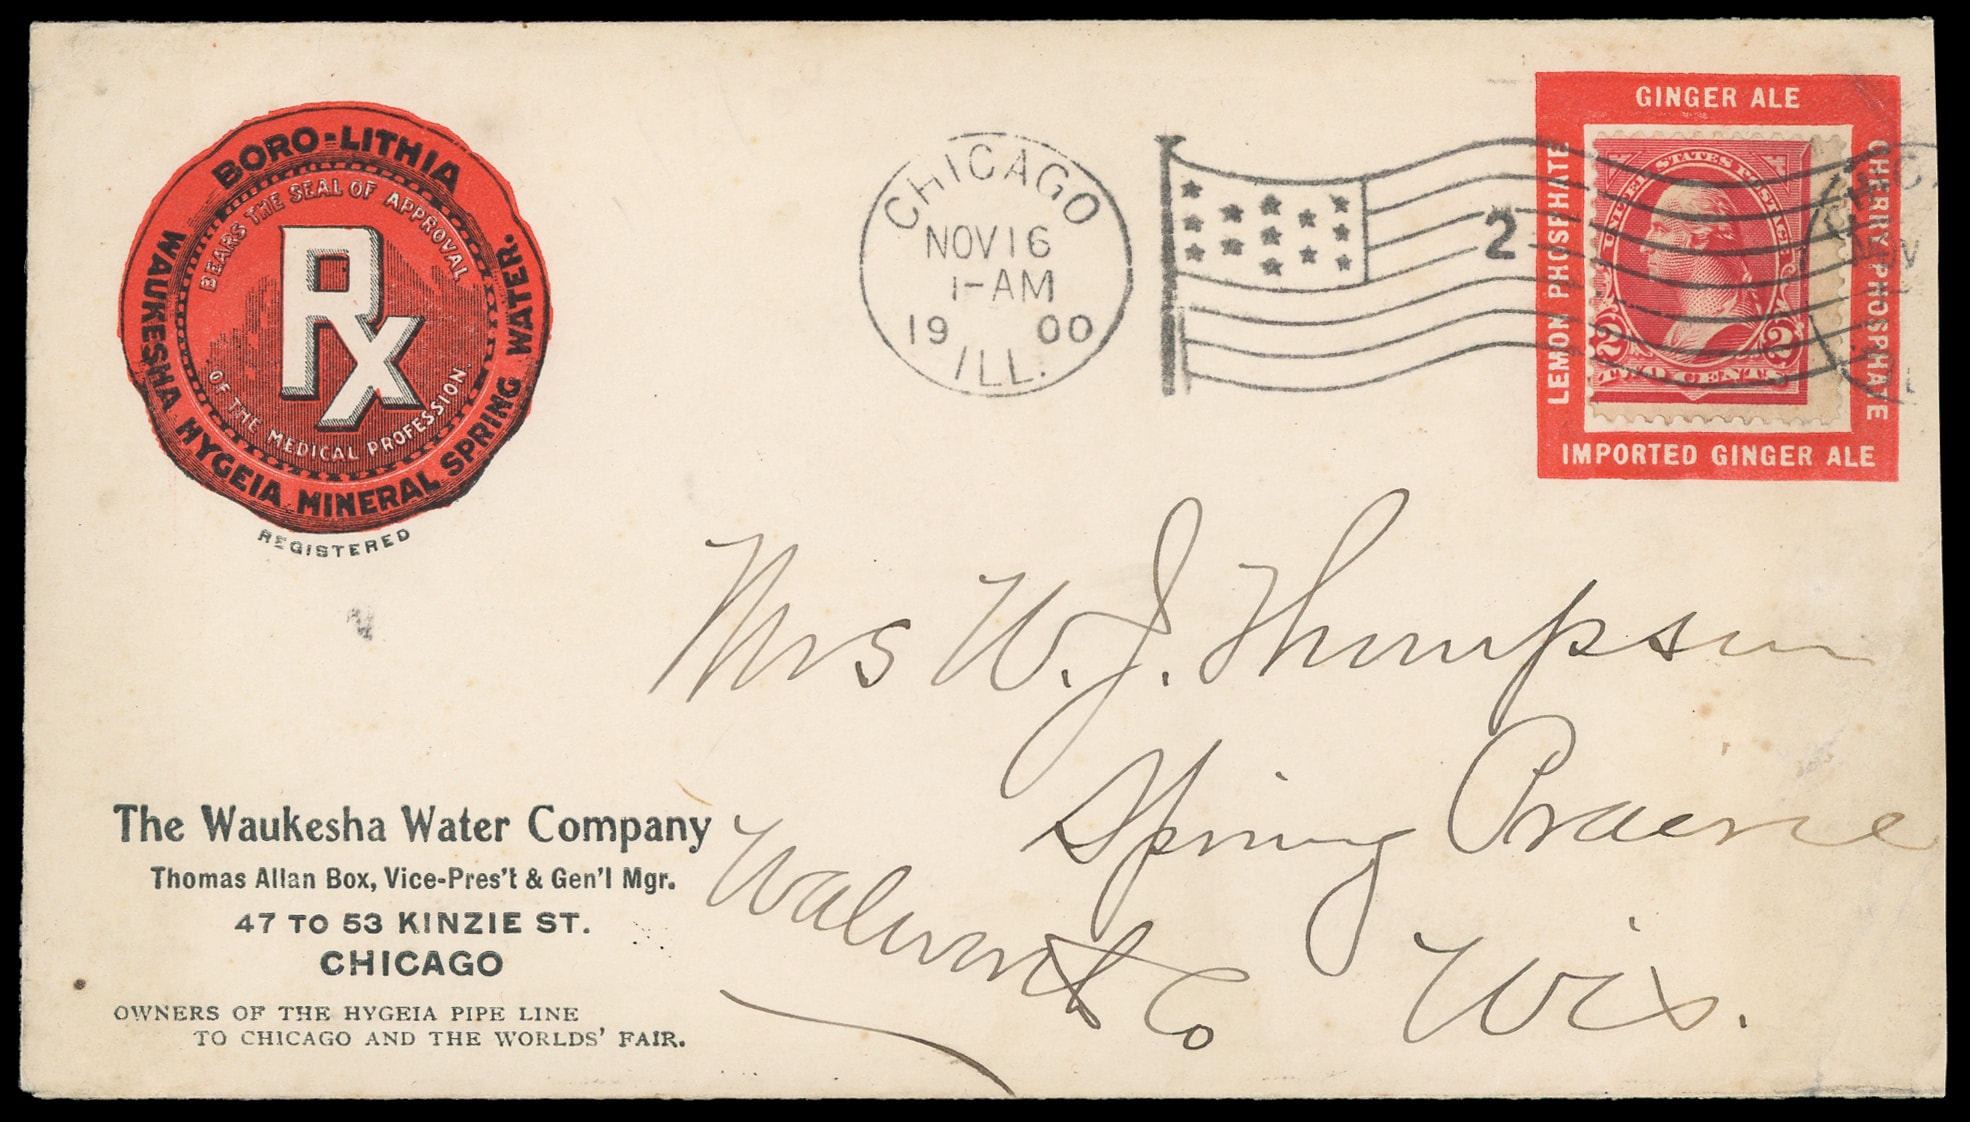 BORO-LITHIA
WAUKESHA HYGEIA MINERAL SPRING WATER.
BEARS THE SEAL OF APPROVAL
Rx
OF THE MEDICAL PROFESSION.
REGISTERED
CHICAGO
NOV 16
1-AM
19 00
ILL.
2
GINGER ALE
LEMON PHOSPHATE
CHERRY PHOSPHATE
IMPORTED GINGER ALE
UNITED STATES POSTAGE
2 2
TWO CENTS
Mrs W. J. Thompson
Spring Prairie
Walworth Co Wis.
The Waukesha Water Company
Thomas Allan Box, Vice-Pres't & Gen'l Mgr.
47 TO 53 KINZIE ST.
CHICAGO
OWNERS OF THE HYGEIA PIPE LINE
TO CHICAGO AND THE WORLDS' FAIR.